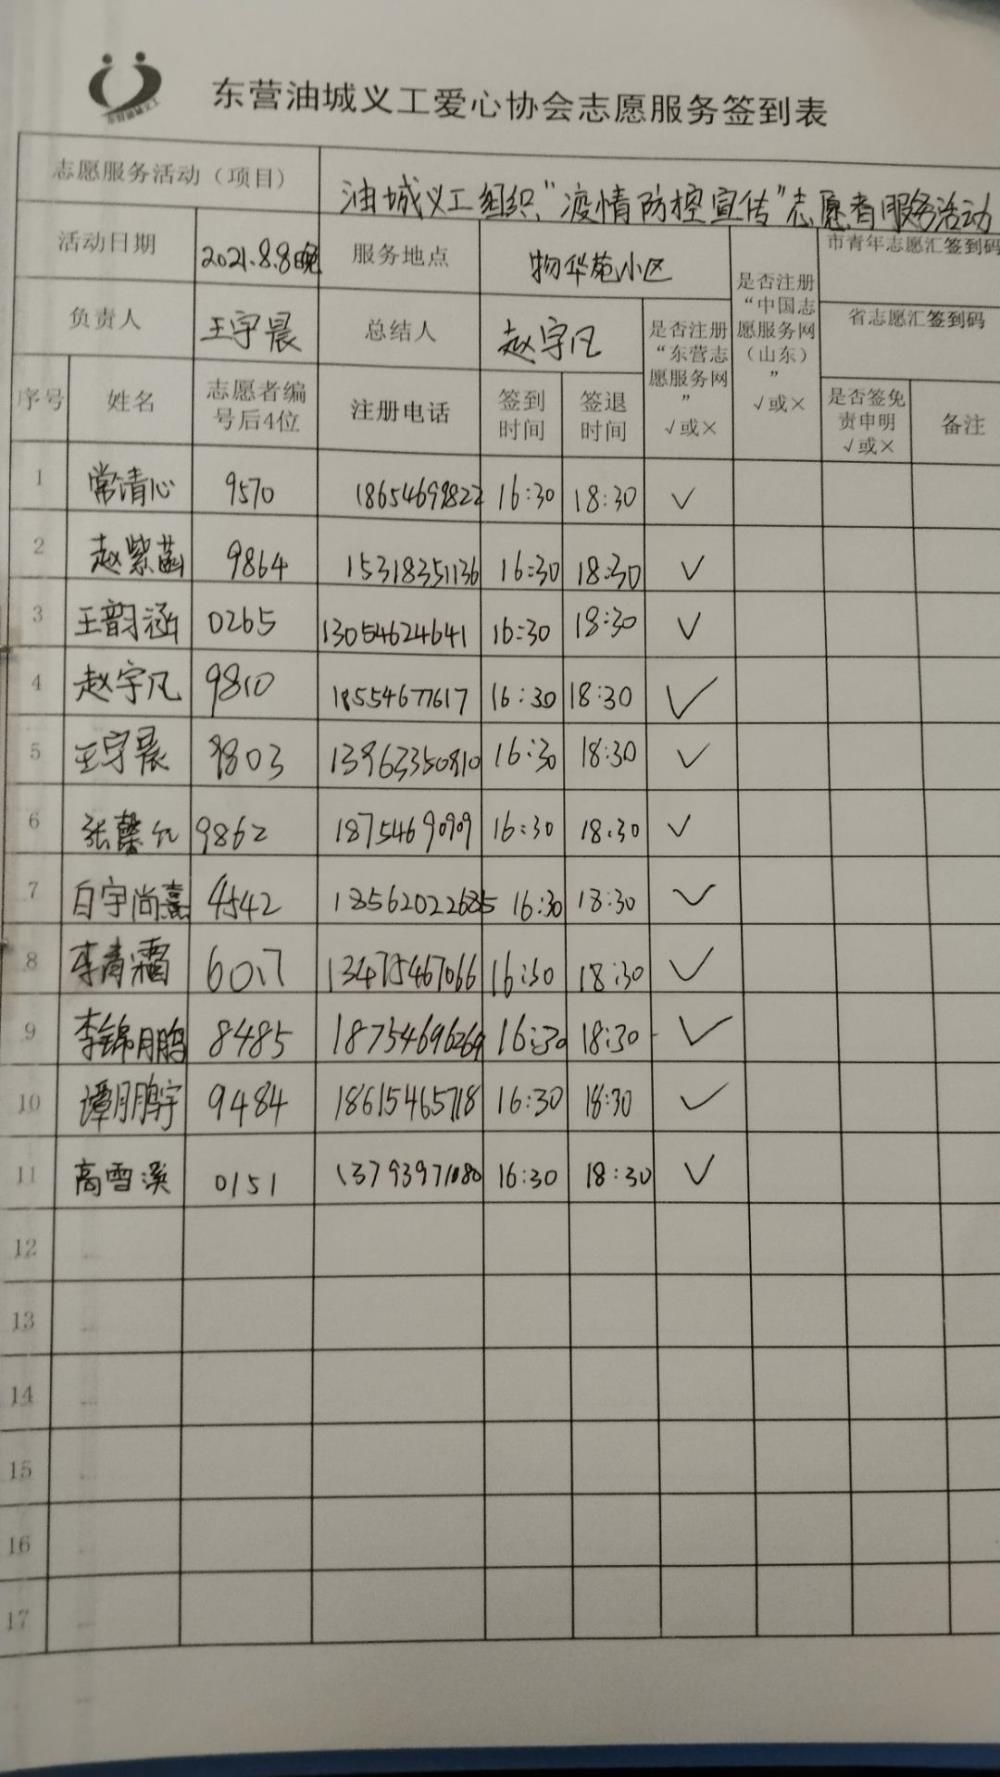 东营油城义工
东营油城义工爱心协会志愿服务签到表
志愿服务活动（项目） 油城义工组织“疫情防控宣传”志愿者服务活动
活动日期 2021.8.8晚 服务地点 物华苑小区 是否注册“中国志愿服务网（山东）” √或× 市青年志愿汇签到码
负责人 王宇晨 总结人 赵宇凡 是否注册“东营志愿服务网” √或× 省志愿汇签到码
序号 姓名 志愿者编号后4位 注册电话 签到时间 签退时间 是否签免责申明 √或× 备注
1 常清心 9570 18654699822 16:30 18:30 √
2 赵紫菡 9864 15318351136 16:30 18:30 √
3 王韵涵 0265 13054624641 16:30 18:30 √
4 赵宇凡 9810 18554677617 16:30 18:30 √
5 王宇晨 9803 13963350810 16:30 18:30 √
6 张馨 9862 18754690909 16:30 18:30 √
7 白宇尚熹 4542 18562022685 16:30 18:30 √
8 李青霜 6017 13475467066 16:30 18:30 √
9 李锦鹏 8485 18754696269 16:30 18:30 √
10 谭鹏宇 9484 18615465718 16:30 18:30 √
11 高雪溪 0151 13793971080 16:30 18:30 √
12
13
14
15
16
17